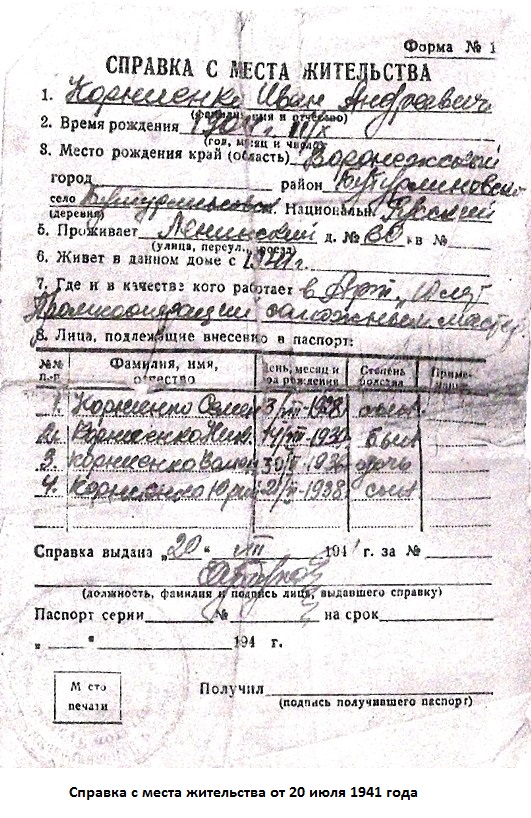 Форма № 1
СПРАВКА С МЕСТА ЖИТЕЛЬСТВА
1. Корниенко Иван Андреевич
(фамилия имя и отчество)
2. Время рождения
(год, месяц и число)
3. Место рождения край (область) Воронежский
город район Бутурлиновск
село . Национальн. Русский
(деревня)
5. Проживает Ленинский д. № кв №
(улица, переул., проезд)
6. Живет в данном доме с
7. Где и в качестве кого работает в Арт.
Промкооперации
8. Лица, подлежащие внесению в паспорт:
№№ п.-п. Фамилия, имя, отчество День, месяц и год рождения Степень родства Приме-чание
1. Корниенко Семен 3/ -1928 сын
2. Корниенко Ник. 14/ сын
3. Корниенко 30/ дочь
4. Корниенко Юрий -1938 сын
Справка выдана „20“ VII 1941 г. за №
(должность, фамилия и подпись лица, выдавшего справку)
Паспорт серии № на срок
„ “ 194 г.
Место
печати
Получил
(подпись получившего паспорт)
Справка с места жительства от 20 июля 1941 года